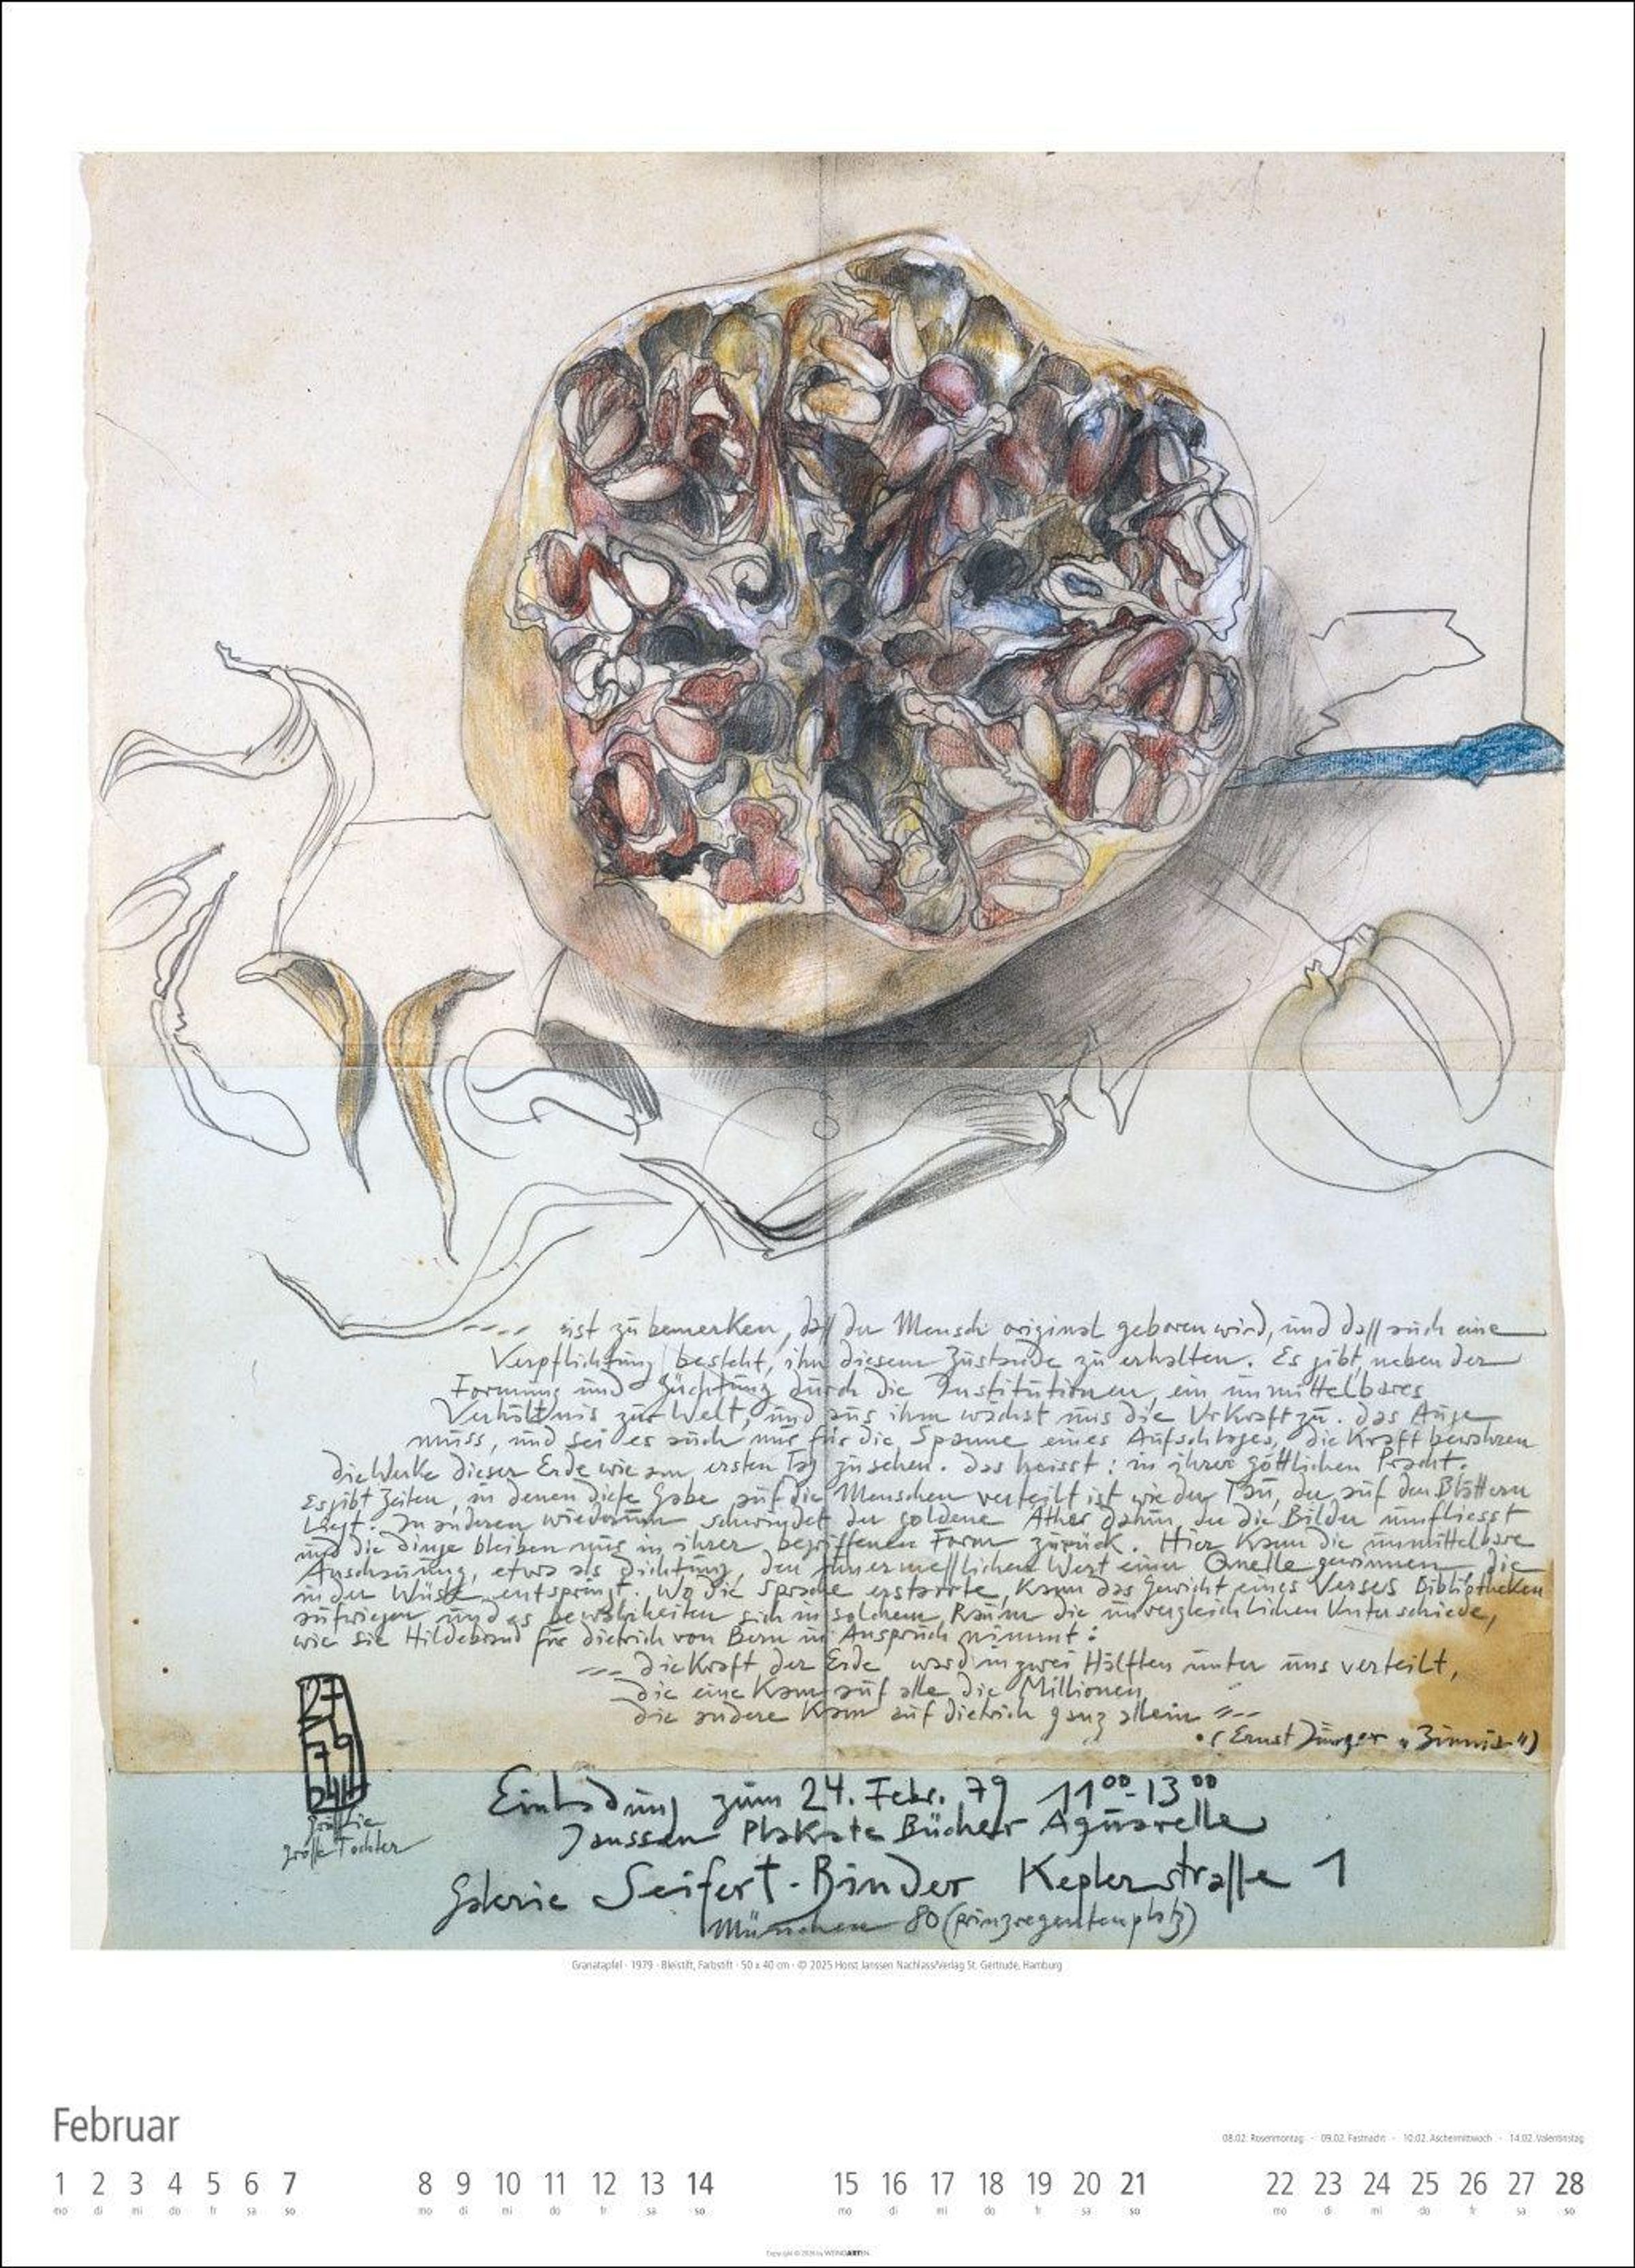 ---- ist zu bemerken, daß der Mensch original geboren wird, und daß auch eine
Verpflichtung besteht, ihn diesem Zustande zu erhalten. Es gibt, neben der
Formung und Züchtung durch die Institutionen, ein unmittelbares
Verhältnis zur Welt, und aus ihm wächst uns die Urkraft zu. das Auge
muss, und sei es auch nur für die Spanne eines Aufschlages, die Kraft bewahren
die Werke dieser Erde wie am ersten Tag zu sehen. das heisst: in ihrer göttlichen Pracht.
Es gibt Zeiten, in denen diese Gabe auf die Menschen verteilt ist wie der Tau, der auf den Blättern
liegt. In anderen wiederum schwindet der goldene Äther dahin, der die Bilder umfliesst
und die dinge bleiben nur in ihrer begriffenen Form zurück. Hier kann die unmittelbare
Anschauung, etwa als Dichtung, den unermeßlichen Wert einer Quelle gewinnen, die
in der Wüste entspringt. Wo die Sprache erstarrte, kann das Gewicht eines Verses Bibliotheken
aufwiegen und es bewahrheiten sich in solchem Raum die unvergleichlichen Unterschiede,
wie sie Hildebrand für dietrich von Bern in Anspruch nimmt:
--- die Kraft der Erde ward in zwei Hälften unter uns verteilt,
die eine kam auf alle die Millionen,
die andere kam auf dietrich ganz allein "--
(Ernst Jünger „Zinnia")
27
79
große Tochter
Einladung zum 24. Febr. 79 11⁰⁰-13⁰⁰
Janssen Plakate Bücher Aquarelle
Galerie Seifert-Binder Keplerstraße 1
München 80 (prinzregentenplatz)
Granatapfel · 1979 · Bleistift, Farbstift · 50 x 40 cm · © 2025 Horst Janssen Nachlass/Verlag St. Gertrude, Hamburg
Februar
08.02. Rosenmontag · 09.02. Fastnacht · 10.02. Aschermittwoch · 14.02. Valentinstag
1 2 3 4 5 6 7 8 9 10 11 12 13 14 15 16 17 18 19 20 21 22 23 24 25 26 27 28
mo di mi do fr sa so mo di mi do fr sa so mo di mi do fr sa so mo di mi do fr sa so
Copyright © 2026 by WEINGARTEN